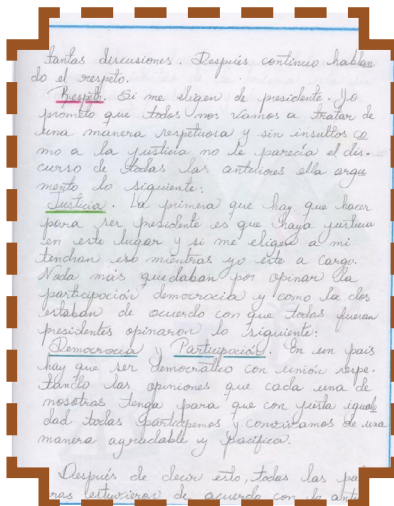 tantas discusiones. Después continuo hablan
do el respeto.
Respeto. Si me eligen de presidente. Yo
prometo que todos nos vamos a tratar de
una manera respetuosa y sin insultos co
mo a la justicia no le parecía el dis-
curso de todas las anteriores ella argu
mento lo siguiente:
Justicia. Lo primero que hay que hacer
para ser presidente es que haya justicia
en este lugar y si me eligen a mi
tendran eso mientras yo este a cargo.
Nada más quedaban por opinar la
participación democracia y como las dos
estaban de acuerdo con que todas fueran
presidentes opinaron lo siguiente:
Democracia y Participación. En un país
hay que ser democrático con unión respe-
tando las opiniones que cada una de
nosotras tenga para que con justa igual
dad todas participemos y convivamos de una
manera agradable y pacífica.
Después de decir esto, todas las pa
ras estuvieron de acuerdo con lo ante